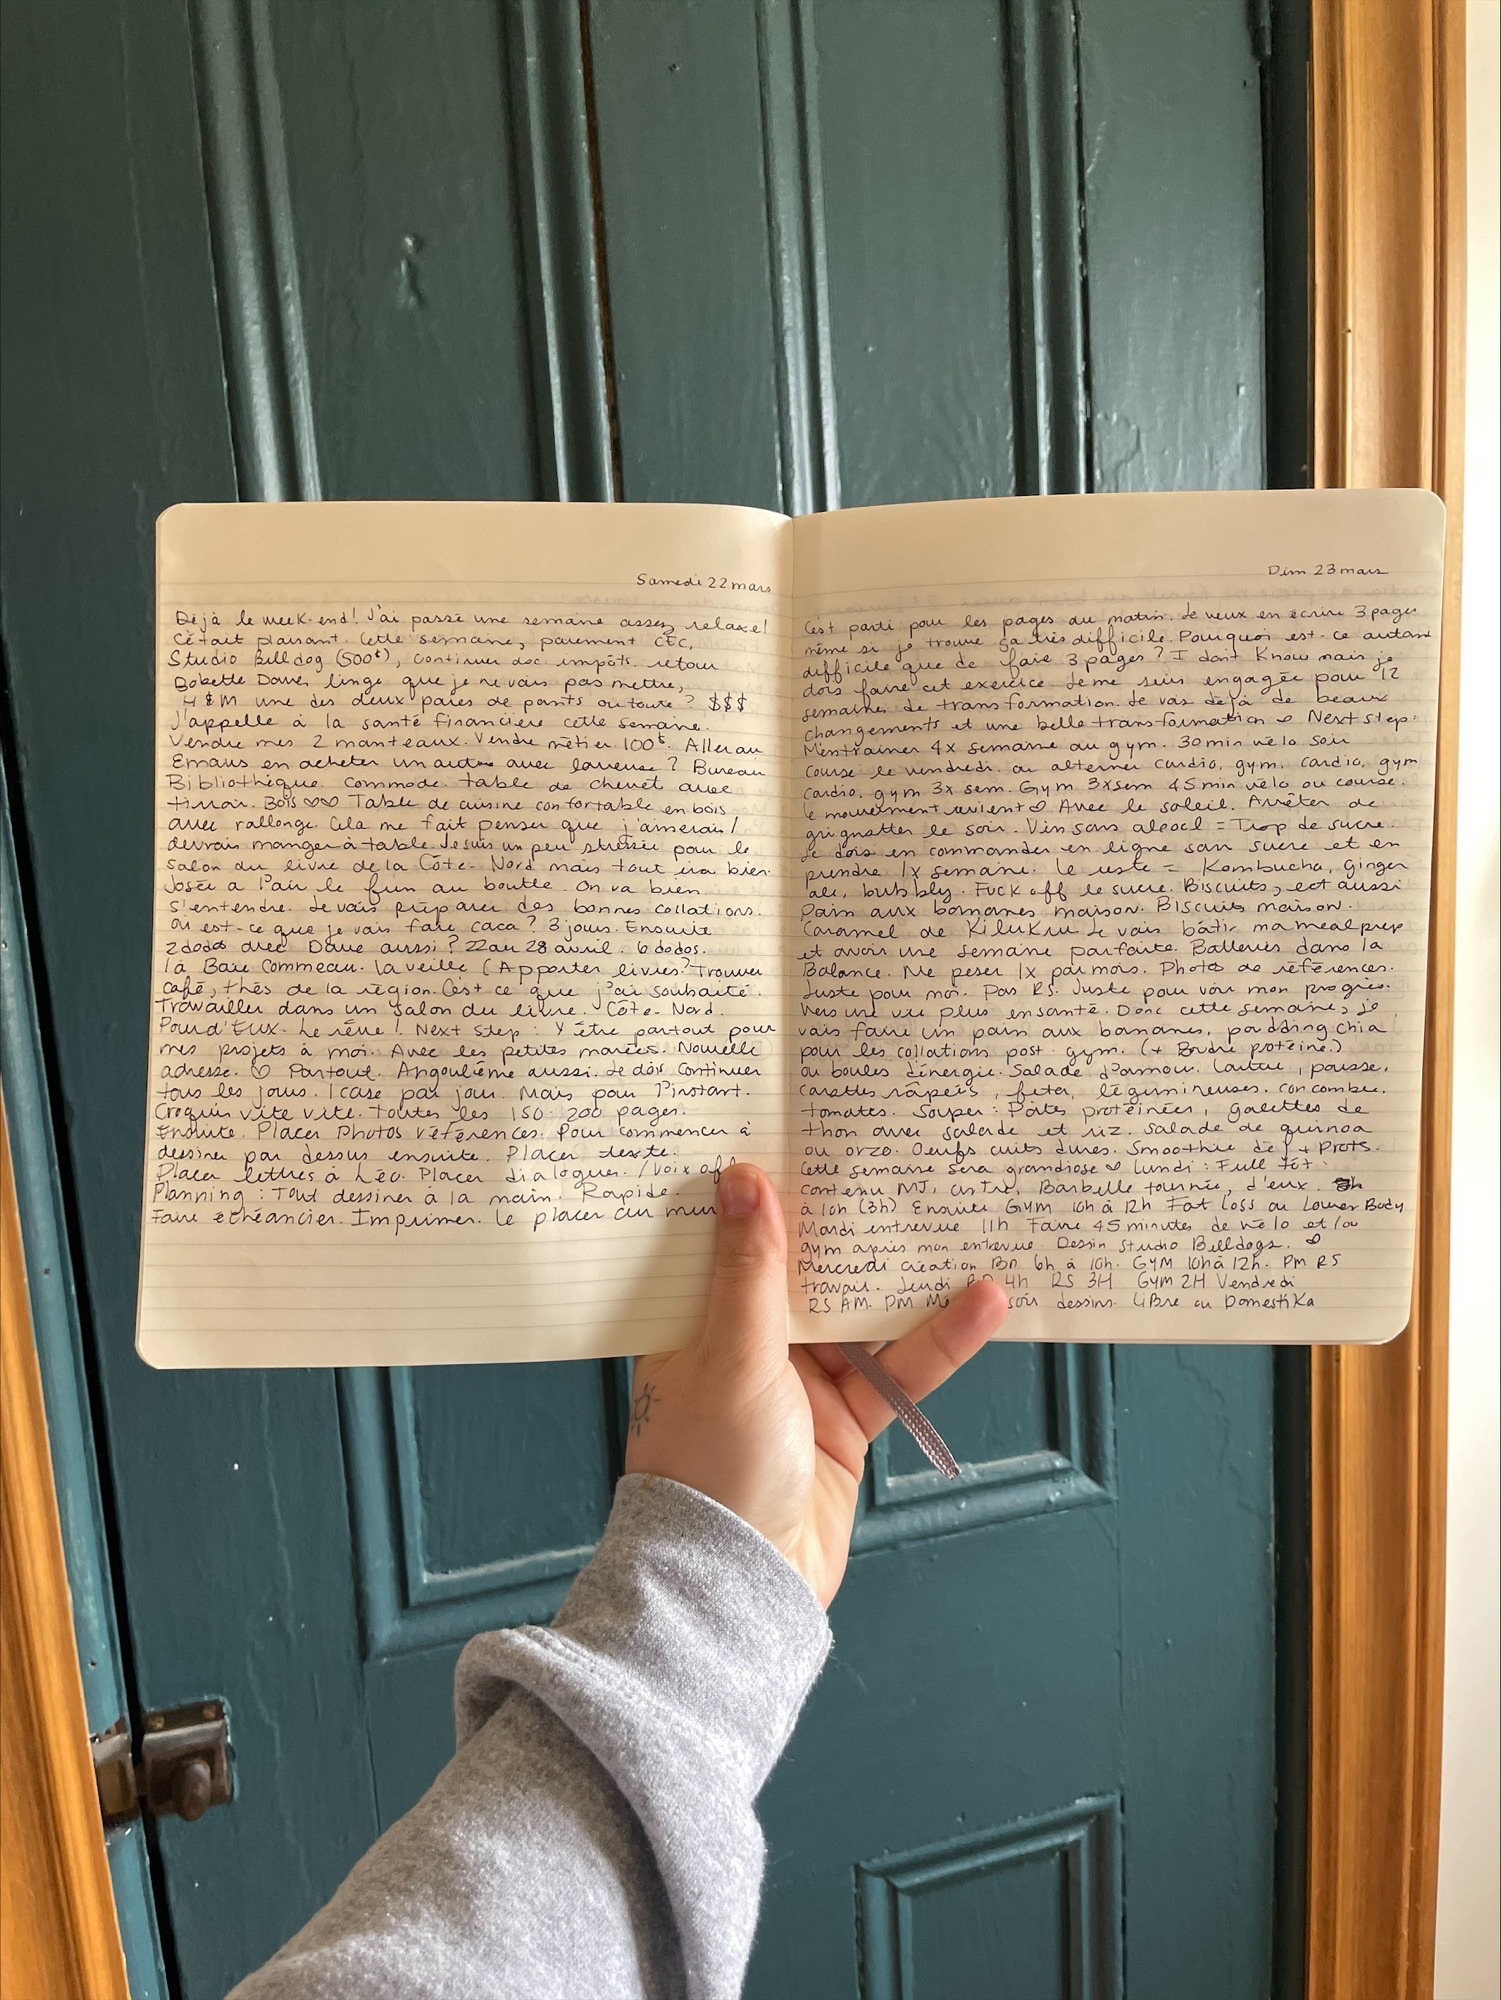 Samedi 22 mars
Déjà le week-end! J'ai passé une semaine assez relaxe!
C'était plaisant. Cette semaine, paiement CEC,
Studio Bulldog (500$), continuer doc impôts. retour
Bobette Dave, linge que je ne vais pas mettre,
H&M une des deux paires de pants ou toute? $$$
J'appelle à la santé financière cette semaine.
Vendre mes 2 manteaux. Vendre métier 100$. Aller au
Emaus en acheter un autre avec laveuse? Bureau
Bibliothèque. Commode. table de chevet avec
tiroir. Bois ♡♡ Table de cuisine confortable en bois
avec rallonge. Cela me fait penser que j'aimerais/
devrais manger à table. Je suis un peu stressée pour le
salon du livre de la Côte-Nord mais tout ira bien.
Josée a l'air le fun au boutte. On va bien
s'entendre. Je vais préparer des bonnes collations.
Où est-ce que je vais faire caca? 3 jours. Ensuite
2 dodos avec Dave aussi? 22 au 28 avril. 6 dodos.
1 à Baie Commeau. la veille (Apporter livres? Trouver
café, thés de la région. C'est ce que j'ai souhaité.
Travailler dans un salon du livre. Côte-Nord.
Pour d'Eux. Le rêve! Next step: Y être partout pour
mes projets à moi. Avec les petites marées. Nouvelle
adresse. ♡ Partout. Angoulême aussi. Je dois continuer
tous les jours. 1 case par jour. Mais pour l'instant.
Croquis vite vite. toutes les 150-200 pages.
Ensuite. Placer Photos références. Pour commencer à
dessiner par dessus ensuite. Placer texte.
Placer lettres à Léo. Placer dialogues. /voix off
Planning: Tout dessiner à la main. Rapide.
Faire échéancier. Imprimer. Le placer au mur
Dim 23 mars
C'est parti pour les pages du matin. Je veux en écrire 3 pages
même si je trouve ça très difficile. Pourquoi est-ce autant
difficile que de faire 3 pages? I dont Know mais je
dois faire cet exercice. Je me suis engagée pour 12
semaines de transformation. Je vois déjà de beaux
changements et une belle transformation ♡ Next step:
M'entrainer 4x semaine au gym. 30 min vélo soir
course le vendredi. ou alterner cardio, gym. cardio, gym
cardio, gym 3x sem. Gym 3x sem 45 min vélo ou course.
le mouvement revient ♡ Avec le soleil. Arrêter de
grignotter le soir. Vin sans alcool = Trop de sucre.
Je dois en commander en ligne san sucre et en
prendre 1x semaine. Le reste = Kombucha, Ginger
ale, bubbly. Fuck off le sucre. Biscuits, est aussi
Pain aux bananes maison. Biscuits maison.
Caramel de Kilukru Je vais bâtir ma mealprep
et avoir une semaine parfaite. Batteries dans la
Balance. Me peser 1x par mois. Photos de références.
Juste pour moi. Pas RS. Juste pour voir mon progrès.
Vers une vie plus en santé. Donc cette semaine, je
vais faire un pain aux bananes, poudding chia
pour les collations post-gym. (+ Poudre protéiné.)
ou boules d'énergie. Salade d'amour. Laitue, pousse,
carottes râpées, feta, légumineuses. concombre.
tomates. Souper: Pâtes protéinées, galettes de
thon avec salade et riz. Salade de quinoa
ou orzo. Oeufs cuits dures. Smoothie déj + Prots.
Cette semaine sera grandiose ♡ Lundi: Full tôt.
contenu MJ, Barbelle tournée, d'eux.
à 10h (3h) Ensuite Gym 10h à 12h Fat Loss ou Lower Body
Mardi entrevue 11h Faire 45 minutes de vélo et/ou
gym après mon entrevue. Dessin Studio Bulldogs. ♡
Mercredi création BD 6h à 10h. GYM 10h à 12h. PM RS
travail. Jeudi BD 4h RS 3H GYM 2H Vendredi
RS AM. PM soir dessins. Libre ou Domestika